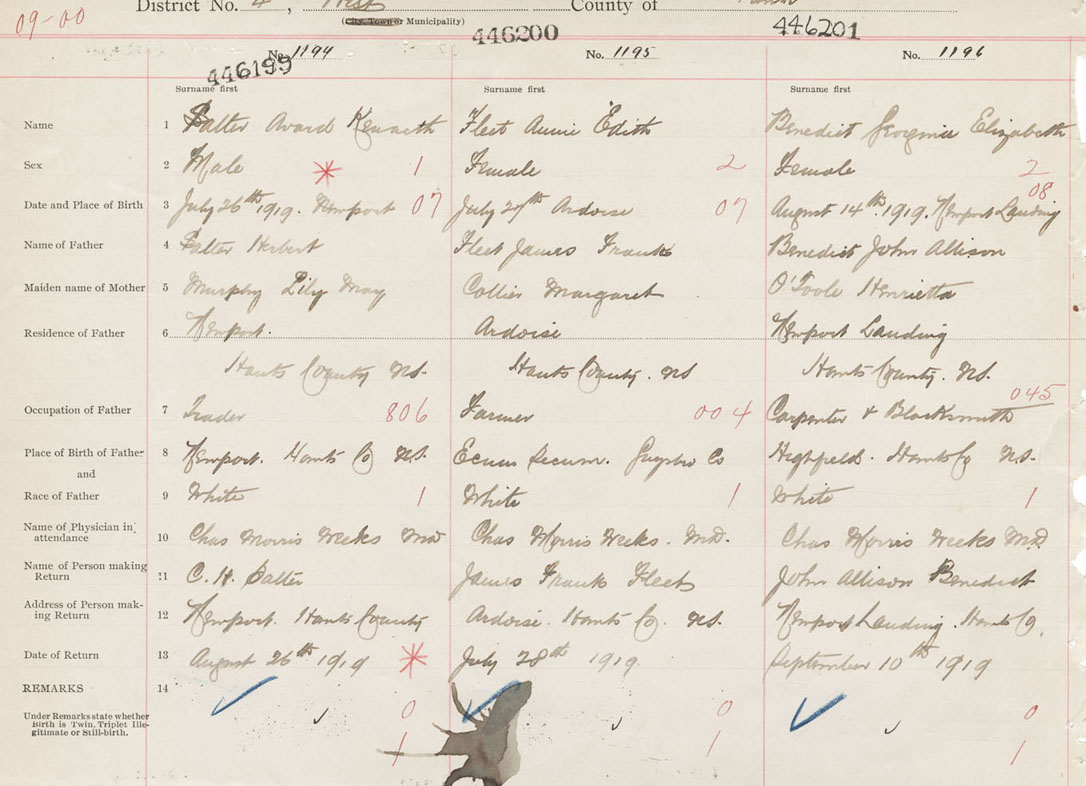 09-00
District No. 4, West County of
(City, Town or Municipality)
446199 446200 446201
No. 1194 No. 1195 No. 1196
Surname first Surname first Surname first
Name 1 Salter Avard Kenneth Fleet Annie Edith Benedict Georgenie Elizabeth
Sex 2 Male 1 Female 2 Female 2
08
Date and Place of Birth 3 July 26th 1919. Newport 07 July 27th Ardoise 07 August 14th. 1919. Newport Landing
Name of Father 4 Salter Herbert Fleet James Frank Benedict John Allison
Maiden name of Mother 5 Murphy Lily May Collier Margaret O'Toole Henrietta
Residence of Father 6 Newport. Ardoise Newport Landing
Hants County NS. Hants County. NS Hants County. NS.
045
Occupation of Father 7 Trader 806 Farmer 004 Carpenter & Blacksmith
Place of Birth of Father 8 Newport. Hants Co NS. Ecum Secum. Guysbro Co Highfield. Hants Co NS.
and
Race of Father 9 White 1 White 1 White 1
Name of Physician in
attendance 10 Chas Morris Weeks MD Chas Morris Weeks. MD. Chas Morris Weeks MD.
Name of Person making
Return 11 C. H. Salter James Frank Fleet John Allison Benedict
Address of Person mak-
ing Return 12 Newport. Hants County Ardoise. Hants Co. NS. Newport Landing. Hants Co.
Date of Return 13 August 26th 1919 July 28th 1919. September 10th 1919
REMARKS 14
0 0 0
Under Remarks state whether
Birth is Twin, Triplet Ille-
gitimate or Still-birth.
1 1 1